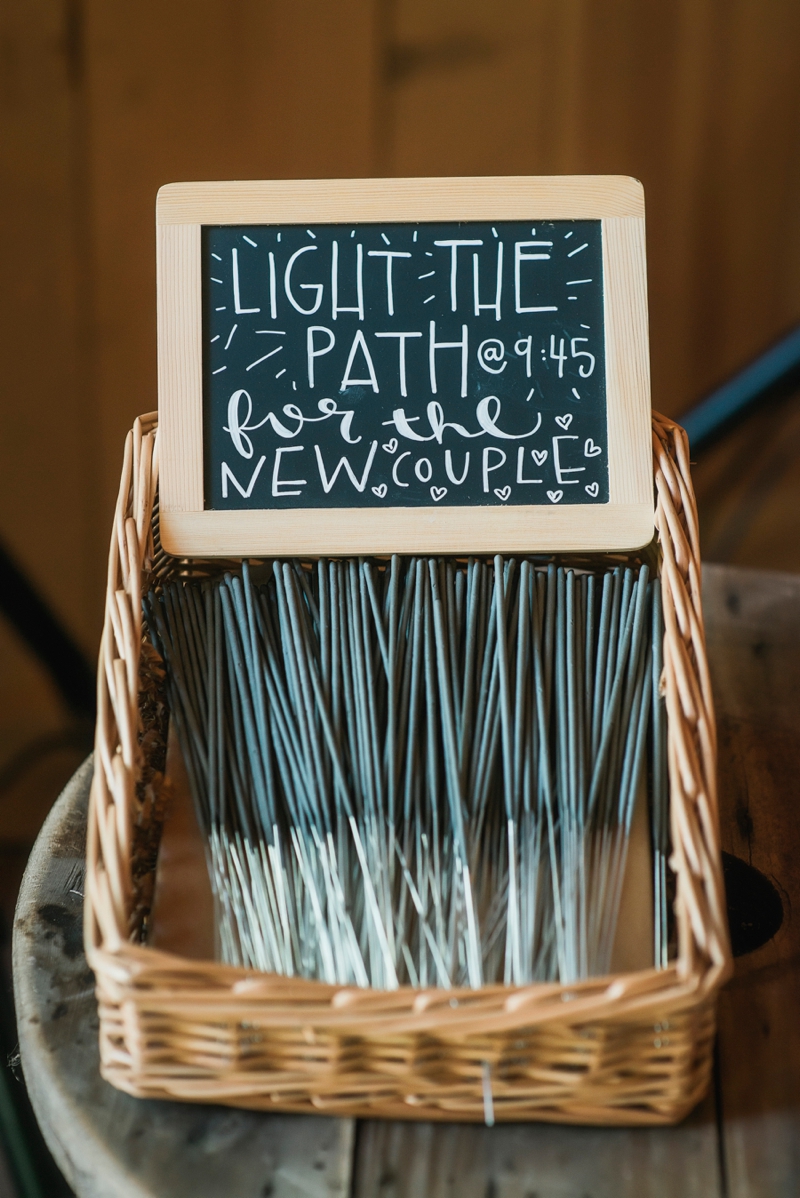 LIGHT THE
PATH @ 9:45
for the
NEW COUPLE